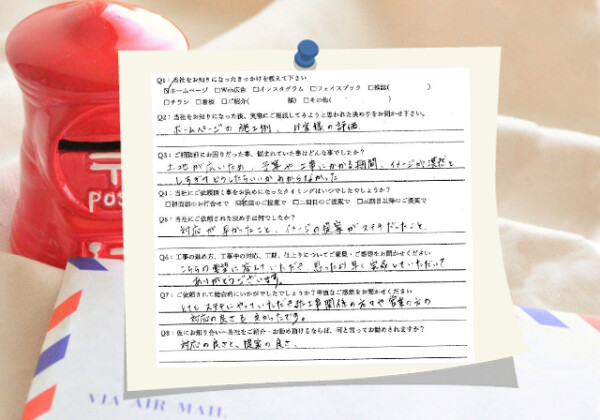 Q1：当社をお知りになったきっかけを教えて下さい
☑ホームページ □Web広告 □インスタグラム □フェイスブック □雑誌( )
□チラシ □看板 □ご紹介( 様) □その他( )
Q2：当社をお知りになった後、実際にご相談してみようと思われた決め手をお聞かせ下さい。
ホームページの施工例、お客様の評価
Q3：ご相談前にお困りだった事、悩まれていた事はどんな事でしたか？
土地が広いため、予算や工事にかかる期間、イメージが漠然と
しすぎてどうしたらいいかわからなかった
Q4：当社にご依頼頂く事をお決めになったタイミングはいつでしたでしょうか？
□担当者のお打合せで □初回のご提案で □二回目のご提案で □三回目以降のご提案で
Q5：当社にご依頼された決め手は何でしたか？
対応が早かったこと、イメージの提案がステキだったこと、
Q6：工事の進め方、工事中の対応、工期、仕上りについてご意見・ご感想をお聞かせください
こちらの要望に応えていただき、思ったより早く完成していただいて
ありがとうございます。
Q7：ご依頼されて総合的にいかがでしたでしょうか？率直なご感想をお聞かせください
とてもステキにやっていただき工事関係の方々や営業の方の
対応の良さも良かったです。
Q8：仮にお知り合いへ当社をご紹介・お勧め頂けるならば、何と言ってお勧めされますか？
対応の良さと、提案の良さ、
POS
VIA AIR MAIL